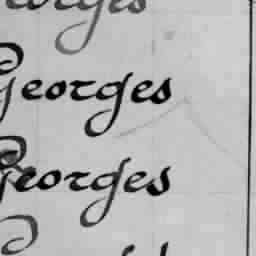 Georges
Georges
Georges